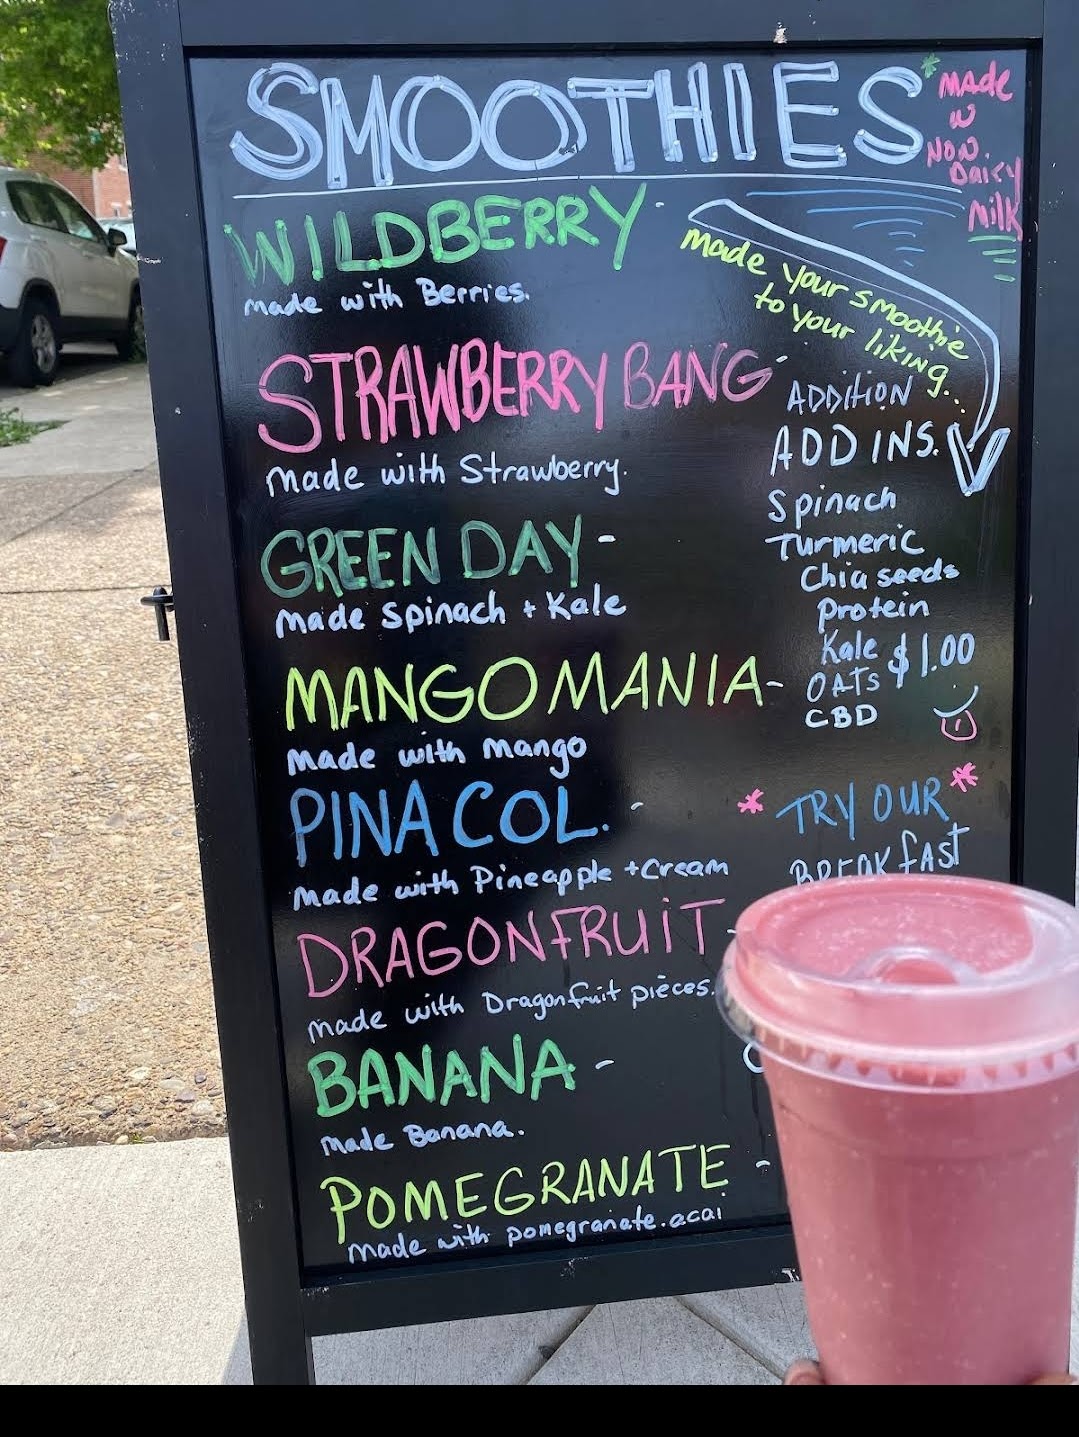 SMOOTHIES
* MADE
W
NON
Dairy
Milk
WILDBERRY -
made with Berries.
made your smoothie
to your liking...
STRAWBERRY BANG -
made with Strawberry.
ADDITION
ADD INS.
Spinach
Turmeric
Chia seeds
Protein
Kale
OATS $1.00
CBD
GREEN DAY -
made spinach + Kale
MANGO MANIA -
made with mango
PINA COL. -
made with Pineapple + Cream
* TRY OUR *
BREAKFAST
DRAGONFRUIT -
made with Dragonfruit pieces.
BANANA -
made Banana.
POMEGRANATE -
made with pomegranate.acai